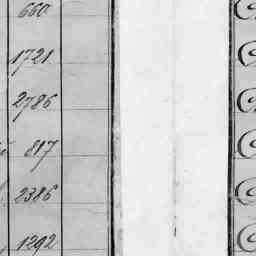 660
1721
2786
817
2386
1292